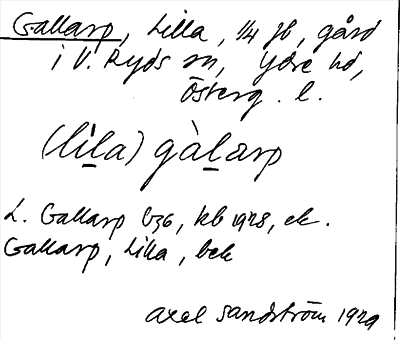 Gallarp, Lilla, 1/4 jb, gård
i V. Ryds sn, Ydre hd,
Österg. l.
(lìla) gàlarp
L. Gallarp G36, kb 1928, ek.
Gallarp, Lilla, bek
Axel Sandström 1929